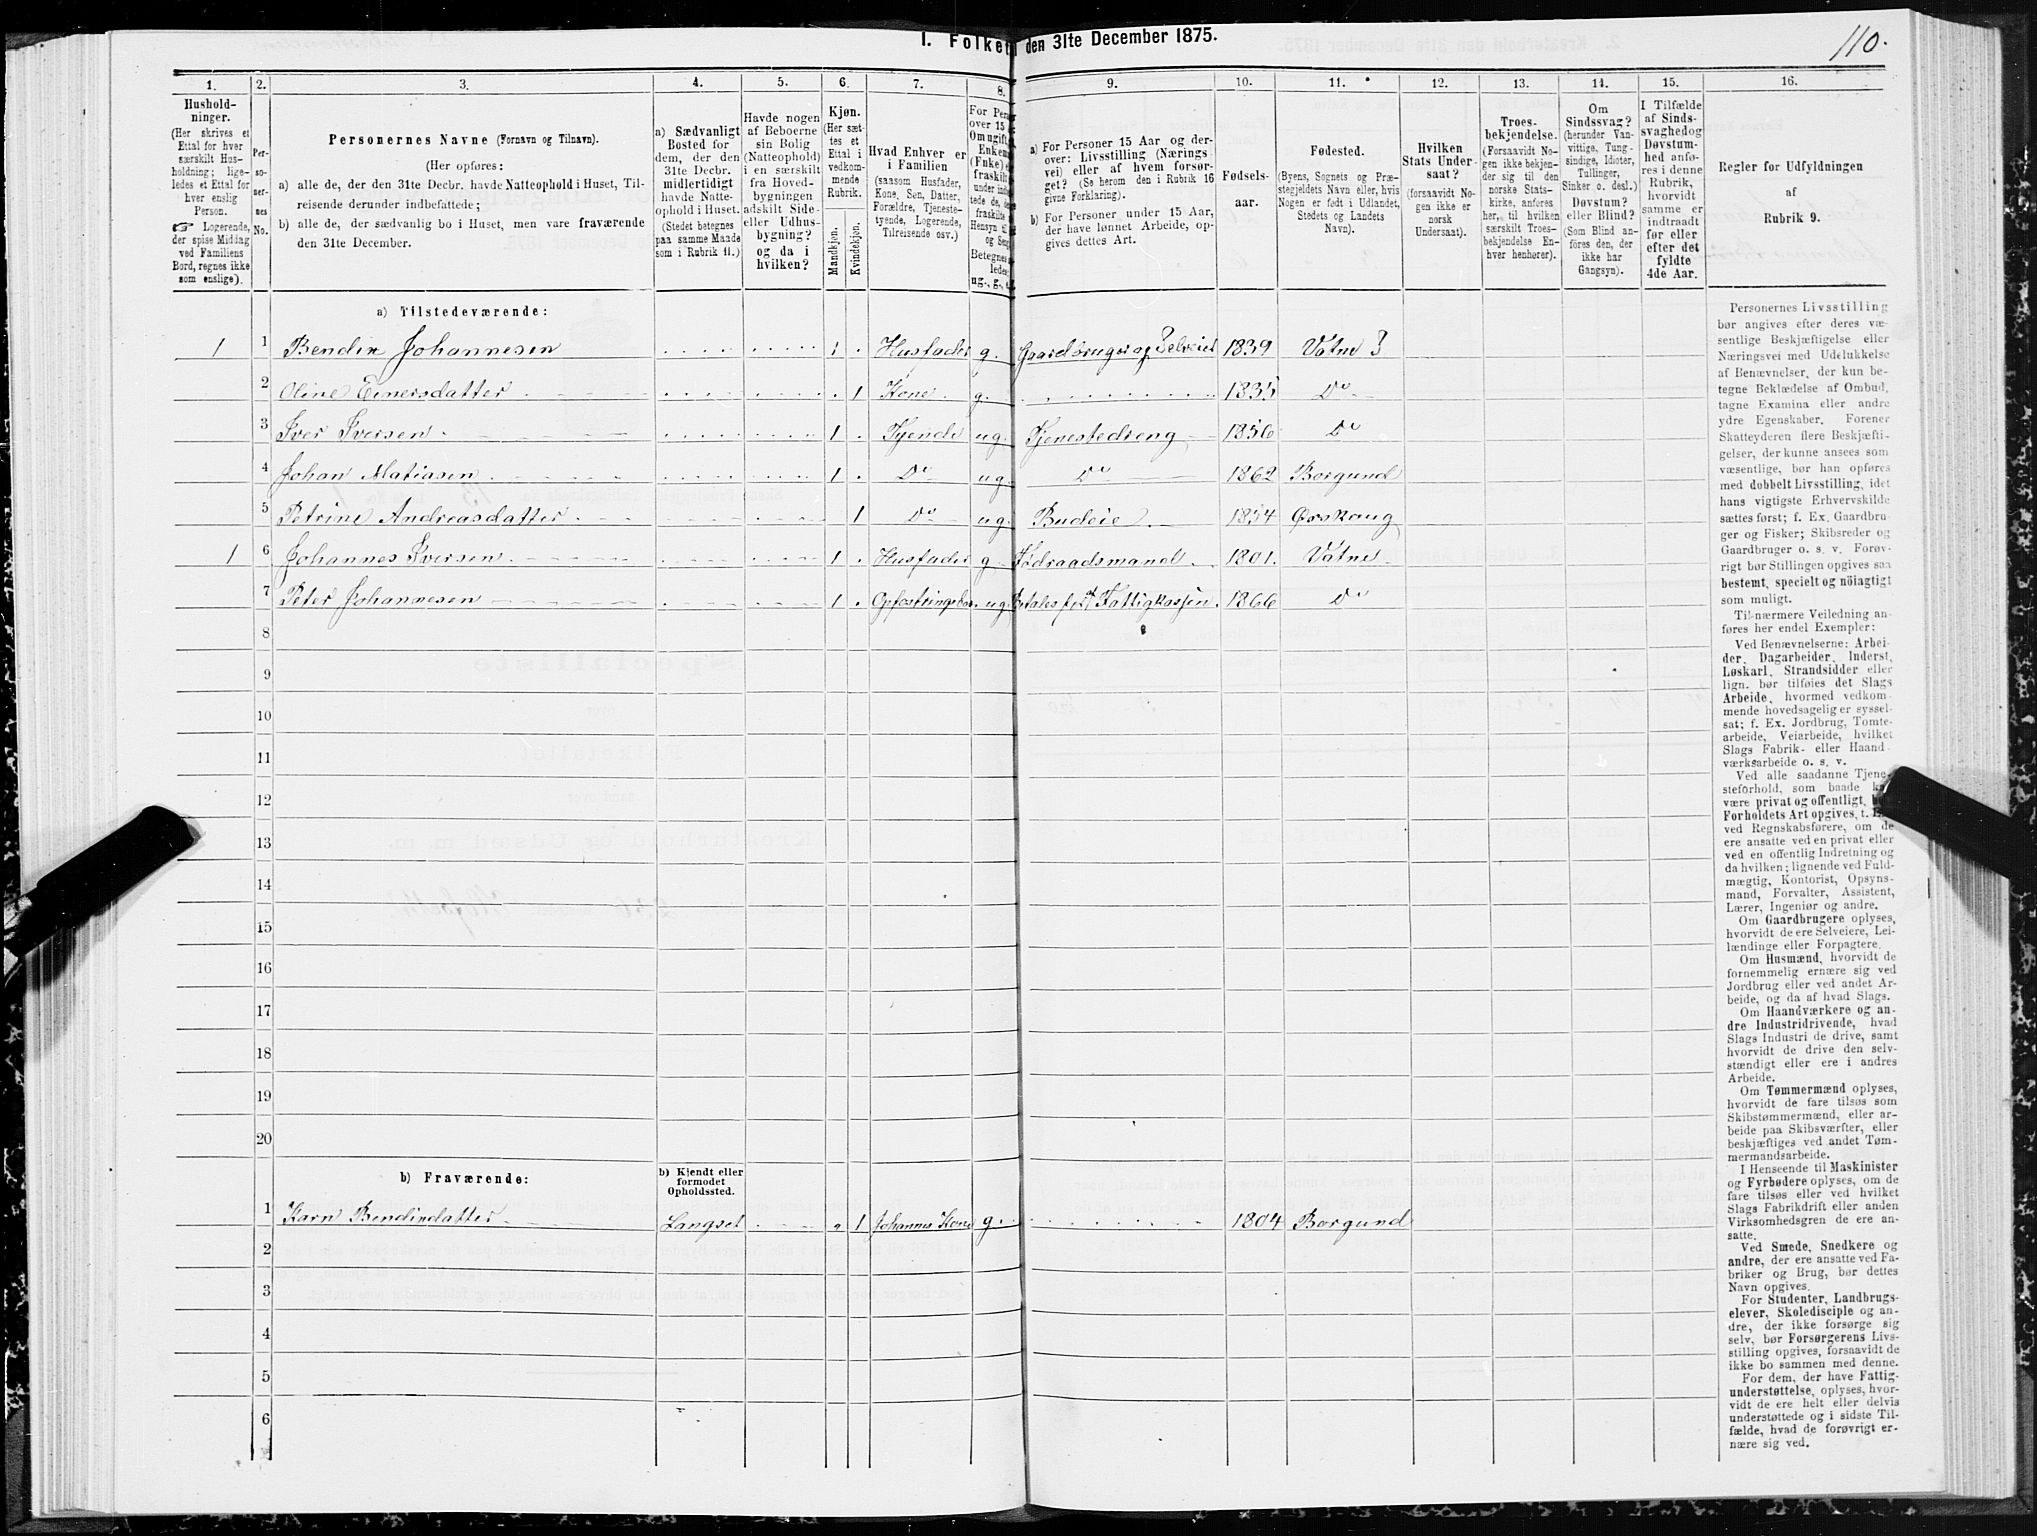 I. Folket den 31te December 1875.
110.
1. 2. 3. 4. 5. 6. 7. 8. 9. 10. 11. 12. 13. 14. 15. 16.
Hushold-
ninger.
(Her skrives et
Ettal for hver
særskilt Hus-
holdning; lige-
ledes et Ettal for
hver enslig
Person.
☞ Logerende,
der spise Middag
ved Familiens
Bord, regnes ikke
som enslige).
Per-
so-
ner-
nes
No.
Personernes Navne (Fornavn og Tilnavn).
(Her opføres:
a) alle de, der den 31te Decbr. havde Natteophold i Huset, Til-
reisende derunder indbefattede;
b) alle de, der sædvanlig bo i Huset, men vare fraværende
den 31te December.
a) Sædvanligt
Bosted for
dem, der den
31te Decbr.
midlertidigt
havde Natte-
ophold i Huset.
(Stedet betegnes
paa samme Maade
som i Rubrik 11.)
Havde nogen
af Beboerne
sin Bolig
(Natteophold)
i en særskilt
fra Hoved-
bygningen
adskilt Side-
eller Udhus-
bygning?
og da i
hvilken?
Kjøn.
(Her sæt-
tes et
Ettal i
vedkom-
mende
Rubrik.
Mandkjøn.
Kvindekjøn.
Hvad Enhver er
i Familien
(saasom Husfader,
Kone, Søn, Datter,
Forældre, Tjeneste-
tyende, Logerende,
Tilreisende osv.)
For Pers
over 15
Om ugift,
Enkem
(Fnke)
fraskilt
ug., g.,
a) For Personer 15 Aar og der-
over: Livsstilling (Nærings
vei) eller af hvem forsør-
get? (Se herom den i Rubrik 16
givne Forklaring).
b) For Personer under 15 Aar,
der have lønnet Arbeide, op-
gives dettes Art.
Fødsels-
aar.
Fødested.
(Byens, Sognets og Præ-
stegjeldets Navn eller, hvis
Nogen er født i Udlandet,
Stedets og Landets
Navn).
Hvilken
Stats Under-
saat?
(forsaavidt No-
gen ikke er
norsk
Undersaat).
Troes-
bekjendelse.
(Forsaavidt No-
gen ikke bekjen-
der sig til den
norske Stats-
kirke, anføres
her, til hvilken
særskilt Troes-
bekjendelse En-
hver henhører).
Om
Sindssvag?
(herunder Van-
vittige, Tung-
sindige, Idioter,
Tullinger,
Sinker o. desl.)
Døvstum?
eller Blind?
(Som Blind an-
føres den, der
ikke har
Gangsyn).
I Tilfælde
af Sinds-
svaghedog
Døvstum-
hed anfø-
res i denne
Rubrik,
hvorvidt
samme er
indtraadt
før eller
efter det
fyldte
4de Aar.
Regler for Udfyldningen
af
Rubrik 9.
a) Tilstedeværende:
1 1 Bendix Johannesen 1 Husfader g. Gaardbruger og Selveier 1839 Vatne
2 Oline Einersdatter 1 Kone g. 1835 Do
3 Iver Iversen 1 Tjende ug. Tjenestedreng 1856 Do
4 Johan Matiasen 1 Do ug. Do 1862 Borgund
5 Petrine Andreasdatter 1 Do ug. Budeie 1854 Ørskoug
1 6 Johannes Iversen 1 Husfader g. Fødraadsmand 1801. Vatne
7 Peter Johannesen 1 ug. Fattigkassen 1866 Do
8
9
10
11
12
13
14
15
16
17
18
19
20
b) Fraværende:
b) Kjendt eller
formodet
Opholdssted.
1 Karn Bendixdatter Langset 1 Johannes Kone g. 1804 Borgund
2
3
4
5
6
Personernes Livsstilling
bør angives efter deres væ-
sentlige Beskjæftigelse eller
Næringsvei med Udelukkelse
af Benævnelser, der kun be-
tegne Beklædelse af Ombud,
tagne Examina eller andre
ydre Egenskaber. Forener
Skatteyderen flere Beskjæfti-
gelser, der kunne ansees som
væsentlige, bør han opføres
med dobbelt Livsstilling, idet
hans vigtigste Erhvervskilde
sættes først; f. Ex. Gaardbru-
ger og Fisker; Skibsreder og
Gaardbruger o. s. v. Forøv-
rigt bør Stillingen opgives saa
bestemt, specielt og nöiagtigt
som muligt.
Til nærmere Veiledning an-
føres her endel Exempler:
Ved Benævnelserne: Arbei-
der, Dagarbeider, Inderst,
Løskarl, Strandsidder eller
lign. bør tilføies det Slags
Arbeide, hvormed vedkom-
mende hovedsagelig er syssel-
sat; f. Ex. Jordbrug, Tomte-
arbeide, Veiarbeide, hvilket
Slags Fabrik- eller Haand-
værksarbeide o. s. v.
Ved alle saadanne Tjene-
steforhold, som baade
være privat og offentligt,
Forholdets Art opgives, t.
ved Regnskabsførere, om de
ere ansatte ved en privat eller
ved en offentlig Indretning og
da hvilken; lignende ved Fuld-
mægtig, Kontorist, Opsyns-
mand, Forvalter, Assistent,
Lærer, Ingeniør og andre.
Om Gaardbrugere oplyses,
hvorvidt de ere Selveiere, Lei-
lændinge eller Forpagtere.
Om Husmænd, hvorvidt de
fornemmelig ernære sig ved
Jordbrug eller ved andet Ar-
beide, og da af hvad Slags.
Om Haandværkere og an-
dre Industridrivende, hvad
Slags Industri de drive, samt
hvorvidt de drive den selv-
stændigt eller ere i andres
Arbeide.
Om Tømmermænd oplyses,
hvorvidt de fare tilsøs som
Skibstømmermænd, eller ar-
beide paa Skibsværfter, eller
beskjæftiges ved andet Tøm-
mermandsarbeide.
I Henseende til Maskinister
og Fyrbødere oplyses, om de
fare tilsøs eller ved hvilket
Slags Fabrikdrift eller anden
Virksomhedsgren de ere an-
satte.
Ved Smede, Snedkere og
andre, der ere ansatte ved Fa-
briker og Brug, bør dettes
Navn opgives.
For Studenter, Landbrugs-
elever, Skoledisciple og an-
dre, der ikke forsørge sig
selv, bør Forsørgerens Livs-
stilling opgives, forsaavidt de
ikke bo sammen med denne.
For dem, der have Fattig-
understøttelse, oplyses, hvor-
vidt de ere helt eller delvis
understøttede og i sidste Til-
fælde, hvad de forøvrigt er-
nære sig ved.